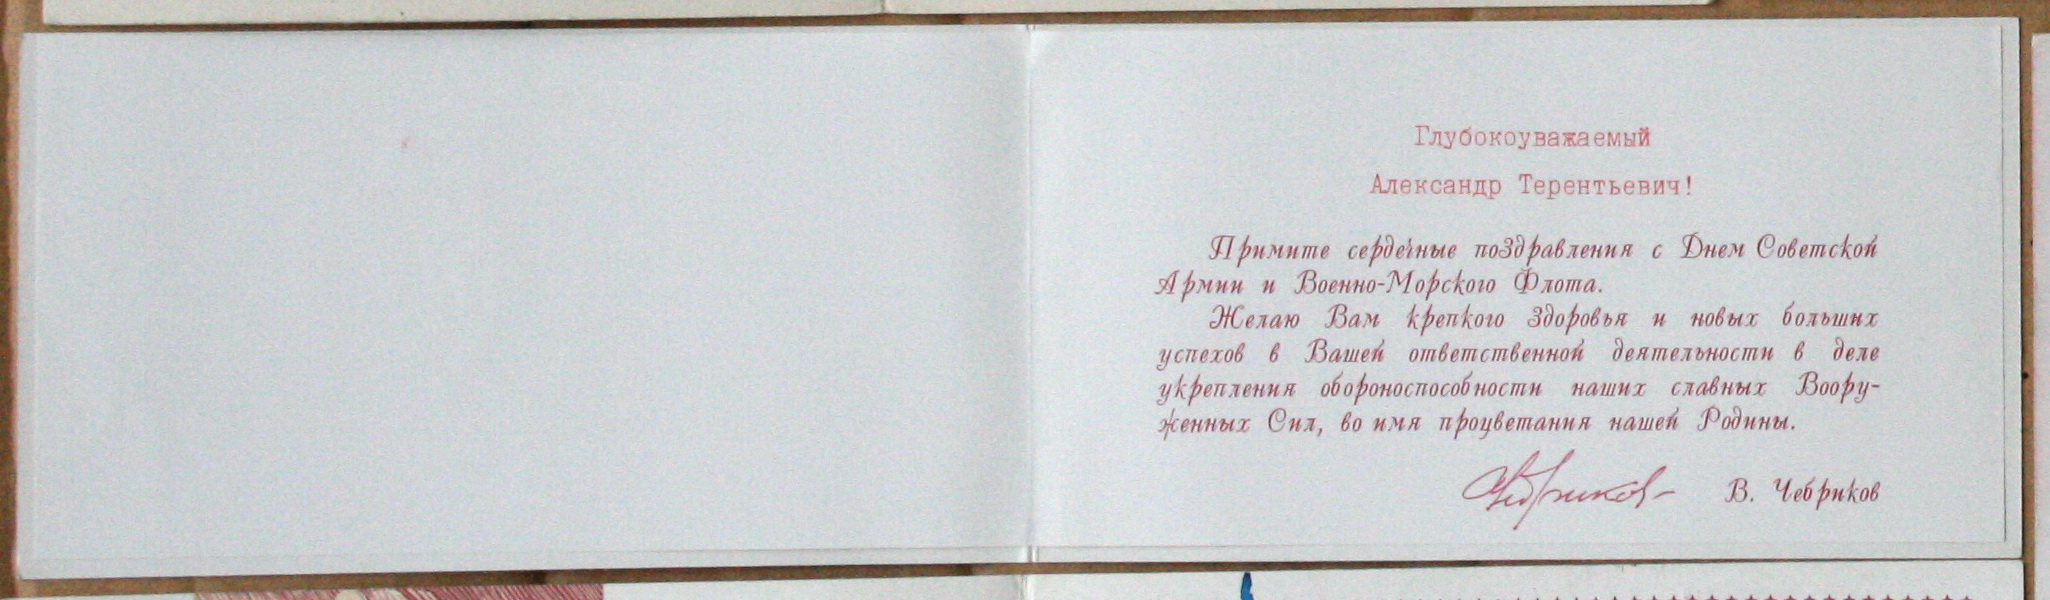 Глубокоуважаемый
Александр Терентьевич!
Примите сердечные поздравления с Днем Советской
Армии и Военно-Морского Флота.
Желаю Вам крепкого здоровья и новых больших
успехов в Вашей ответственной деятельности в деле
укрепления обороноспособности наших славных Воору-
женных Сил, во имя процветания нашей Родины.
Чебриков В. Чебриков